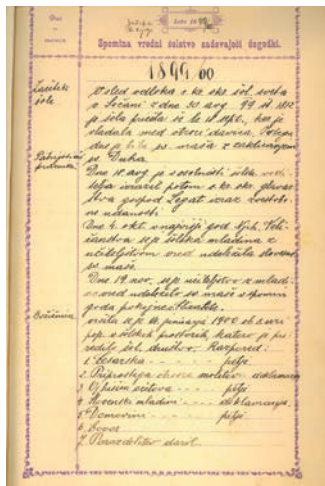 Dan
in
mesec
Leto 1899
Spomina vredni šolstvo zadevajoči dogodki.
1899/00
Začetek
šole
Vsled odloka c. kr. okr. šol. sveta
v Sežani z dne 30. avg. 99. št. 812
je šola pričela še le 18. sept., ker je
vladala med otroci davica. Istega
dne je bila sv. maša z zaklicanjem
sv. Duha.
Patrijotična
Dne 18. avg. je s sosednimi šolsk. vodi-
telji izrazil potom c. kr. okr. glavar-
stva gospod Legat izraz zvestobe
in udanosti.
Dne 4. okt. v najvišji god Njih. Veli-
čanstva se je šolska mladina z
učiteljstvom vred udeležila slovesne
sv. maše.
Dne 19. nov. se je učiteljstvo z mladi-
no vred udeležilo sv. maše v spomin
goda pokojne
Božičnica
vršila se je 6. januarja 1900 ob 3. uri
pop. v šolskih prostorih, katero je pri-
redilo šol. društvo. Razpored:
1. Cesarska - - - petje.
2. Priprostega otroka molitev. deklamacija
3. - - petje
4. Slovenski mladini - - deklamacija.
5. Domovini - - - petje.
6. Govor
7. Porazdelitev daril.